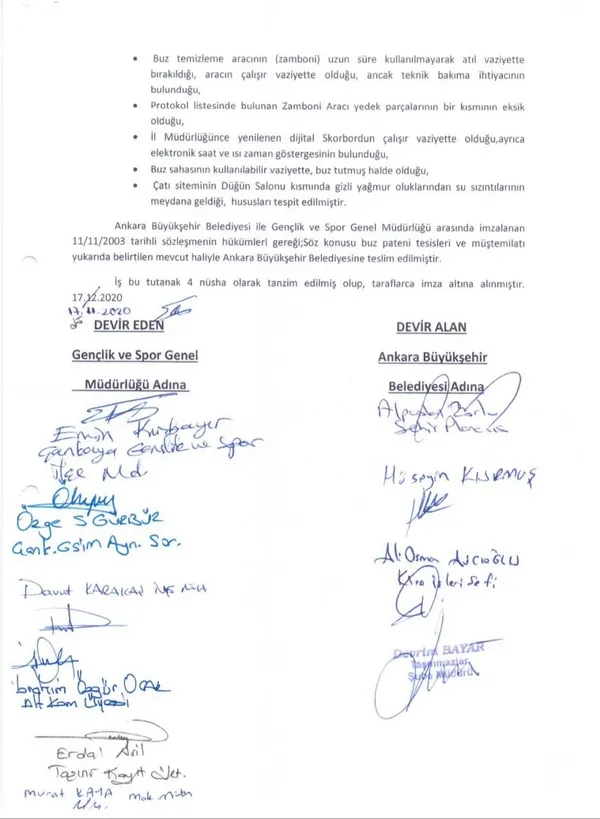 • Buz temizleme aracının (zamboni) uzun süre kullanılmayarak atıl vaziyette
bırakıldığı, aracın çalışır vaziyette olduğu, ancak teknik bakıma ihtiyacının
bulunduğu,
• Protokol listesinde bulunan Zamboni Aracı yedek parçalarının bir kısmının eksik
olduğu,
• İl Müdürlüğünce yenilenen dijital Skorbordun çalışır vaziyette olduğu,ayrıca
elektronik saat ve ısı zaman göstergesinin bulunduğu,
• Buz sahasının kullanılabilir vaziyette, buz tutmuş halde olduğu,
• Çatı siteminin Düğün Salonu kısmında gizli yağmur oluklarından su sızıntılarının
meydana geldiği, hususları tespit edilmiştir.
Ankara Büyükşehir Belediyesi ile Gençlik ve Spor Genel Müdürlüğü arasında imzalanan
11/11/2003 tarihli sözleşmenin hükümleri gereği;Söz konusu buz pateni tesisleri ve müştemilatı
yukarıda belirtilen mevcut haliyle Ankara Büyükşehir Belediyesine teslim edilmiştir.
İş bu tutanak 4 nüsha olarak tanzim edilmiş olup, taraflarca imza altına alınmıştır.
17.12.2020
17.11.2020
DEVİR EDEN
Gençlik ve Spor Genel
Müdürlüğü Adına
Emin
Gençlik ve Spor
İlçe Md.
Özge S GÜRBÜR
Davut
İbrahim Özgür
Alt Kom Üyesi
Erdal
Kayıt
Murat KAYA
DEVİR ALAN
Ankara Büyükşehir
Belediyesi Adına
Hüseyin
Ali Osman
Devrim BAYAR
Taşınmazlar
Şube Müdürü